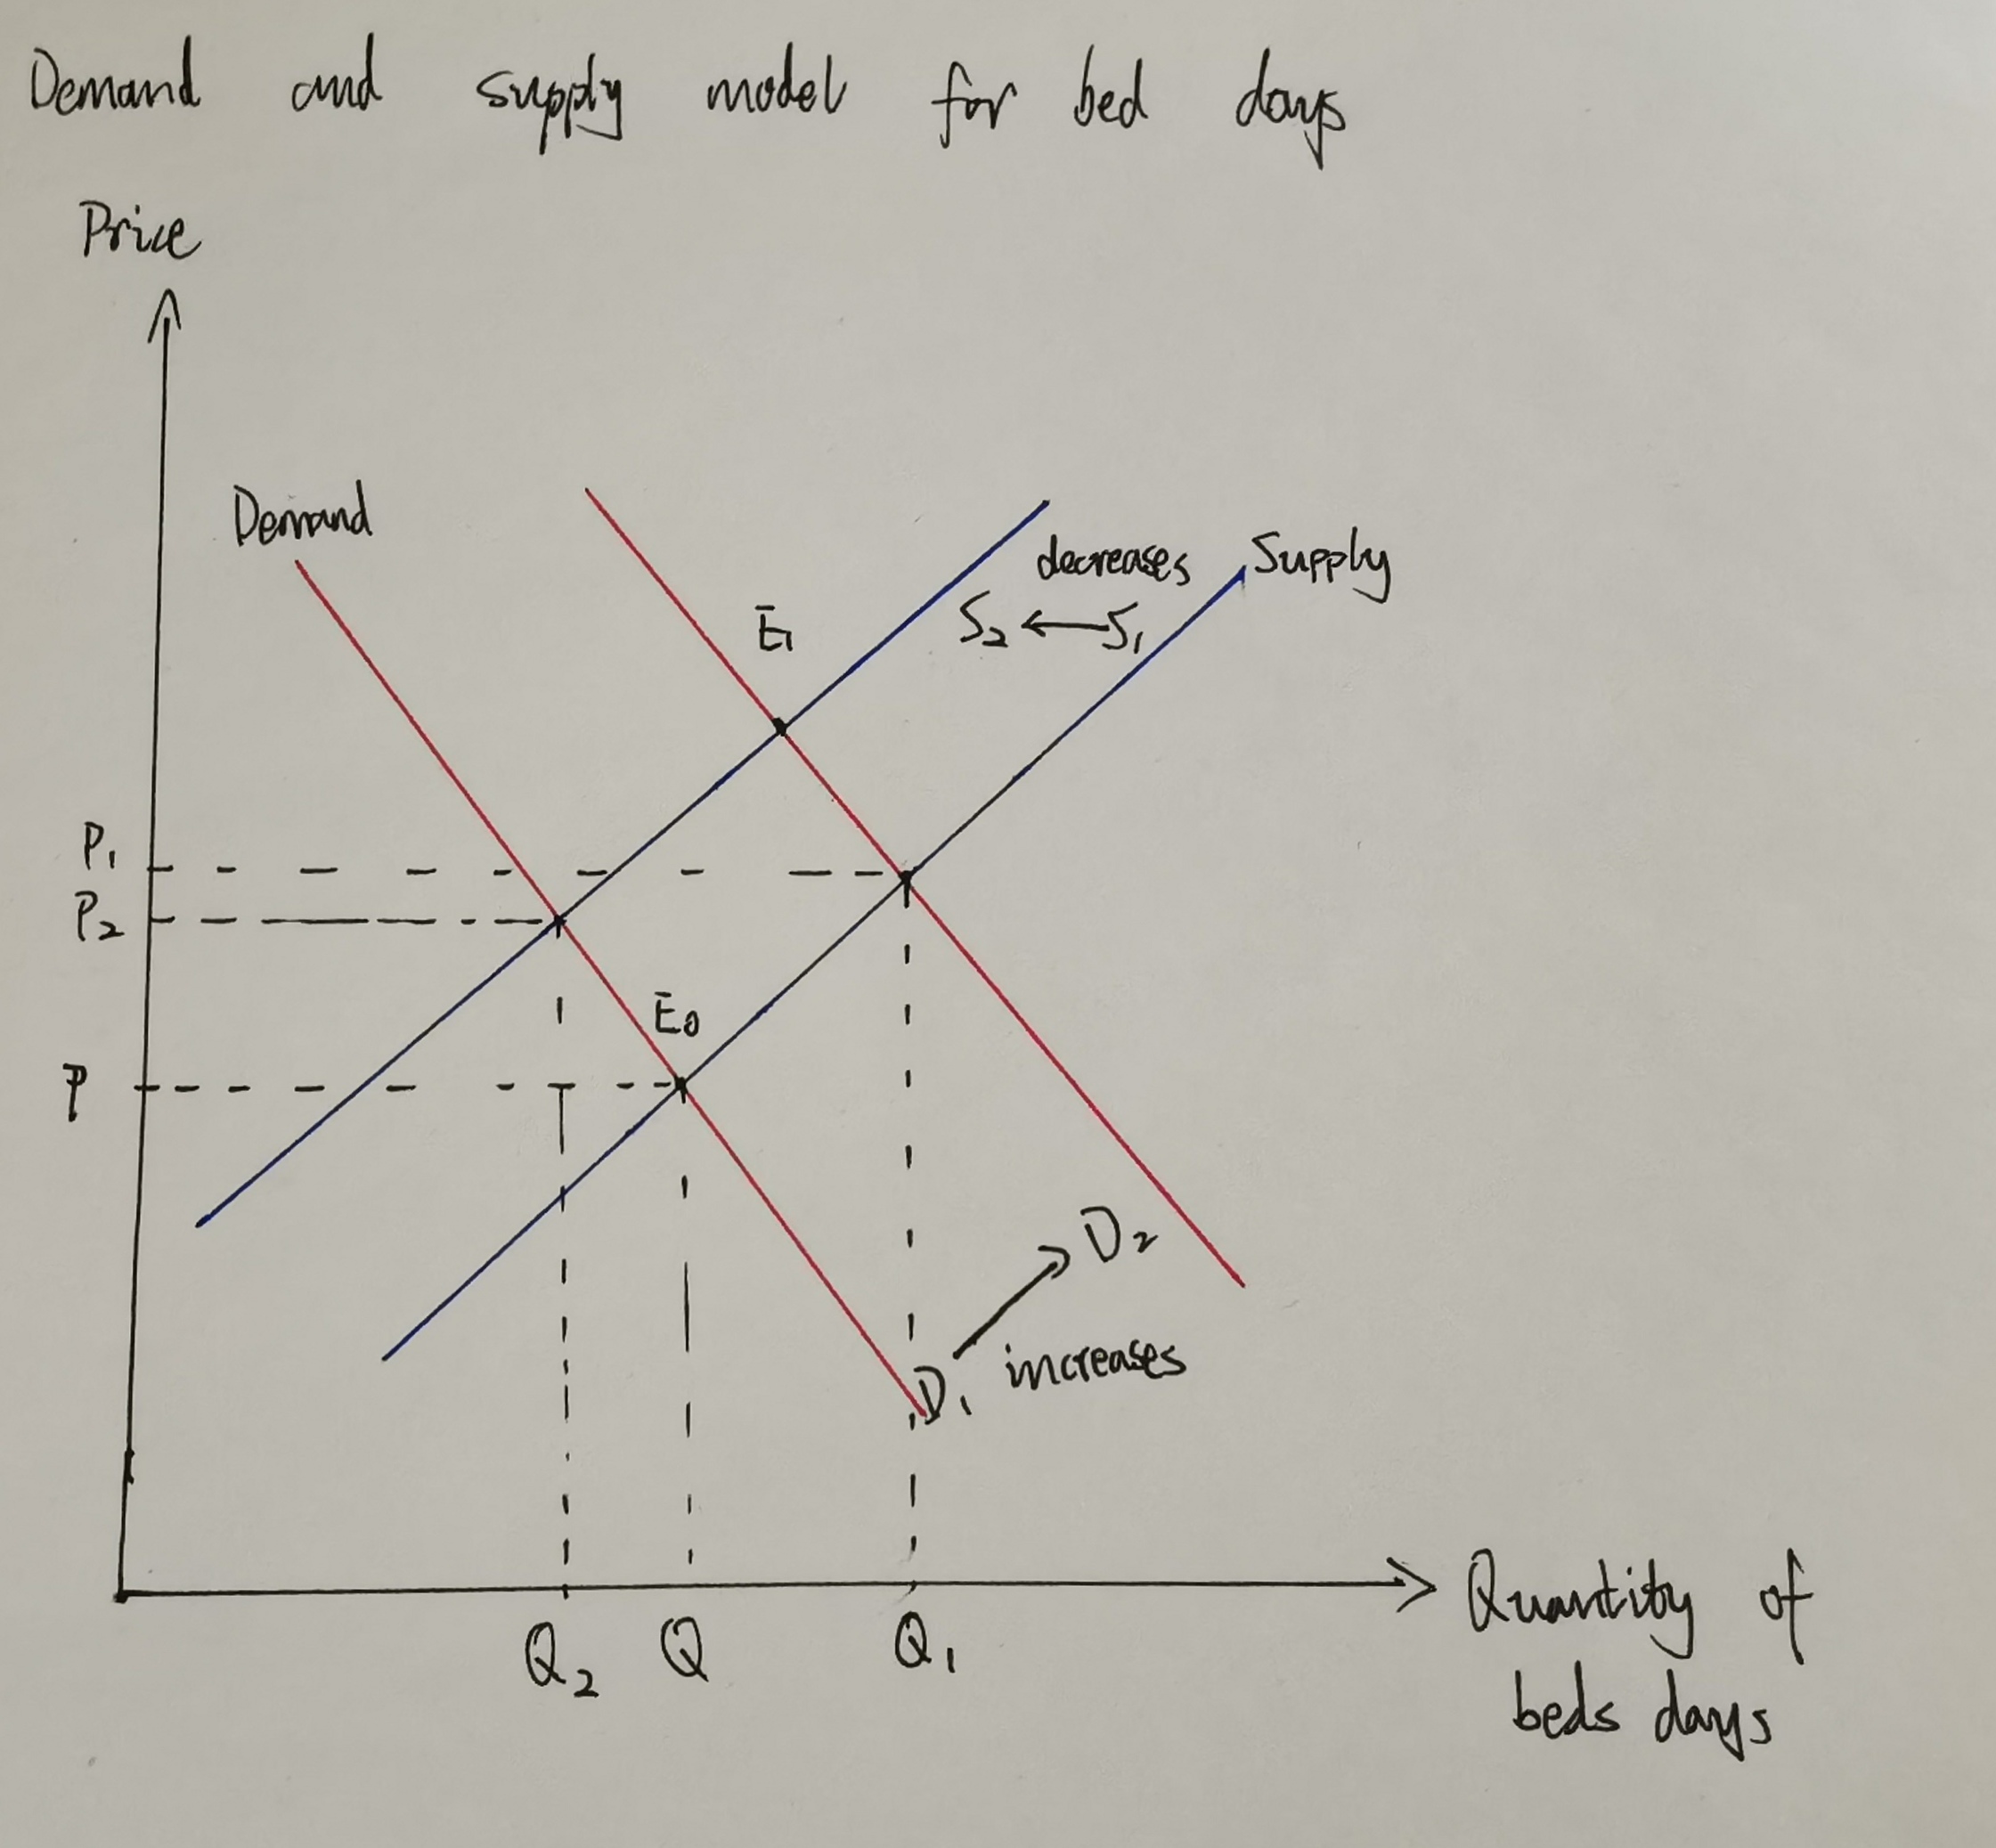 Demand and supply model for bed days
Price
Demand
decreases
Supply
E₁
S₂ ← S₁
P₁
P₂
E₀
P
D₂
D₁ increases
Q₂ Q Q₁
Quantity of
beds days